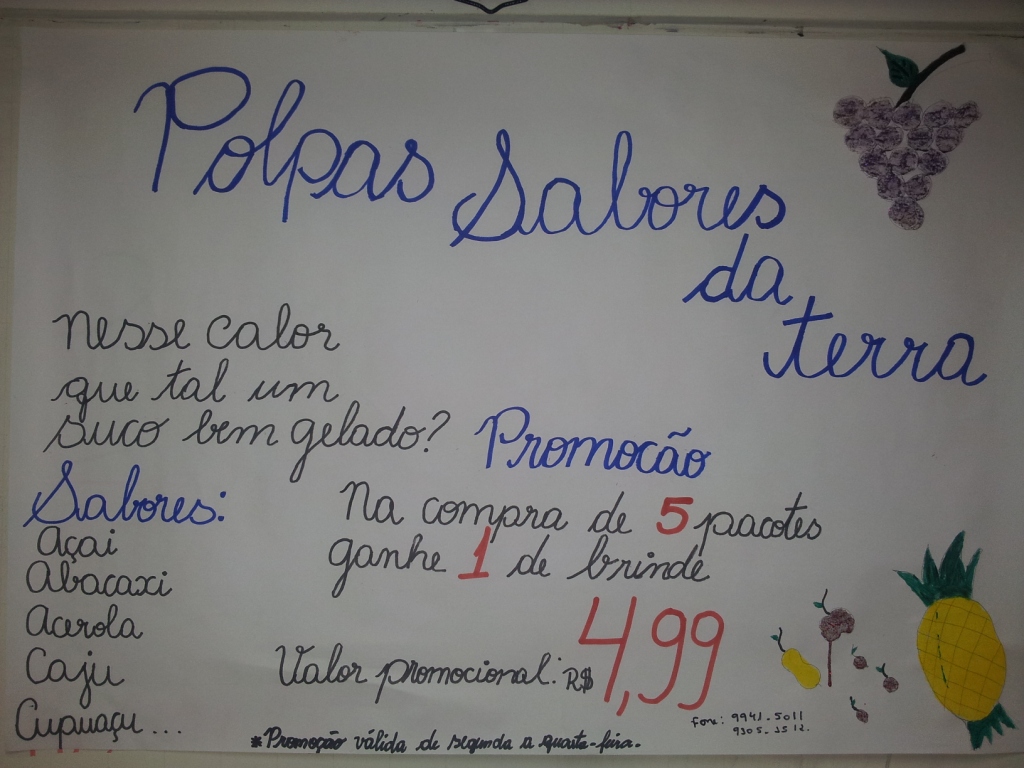 Polpas Sabores
da
terra
Nesse calor
que tal um
suco bem gelado?
Promoção
Sabores:
Açai
Abacaxi
Acerola
Caju
Cupuaçu...
Na compra de 5 pacotes
ganhe 1 de brinde
Valor promocional: R$ 4,99
fone: 9941-5011
9305-3512.
*Promoção válida de segunda a quarta-feira.